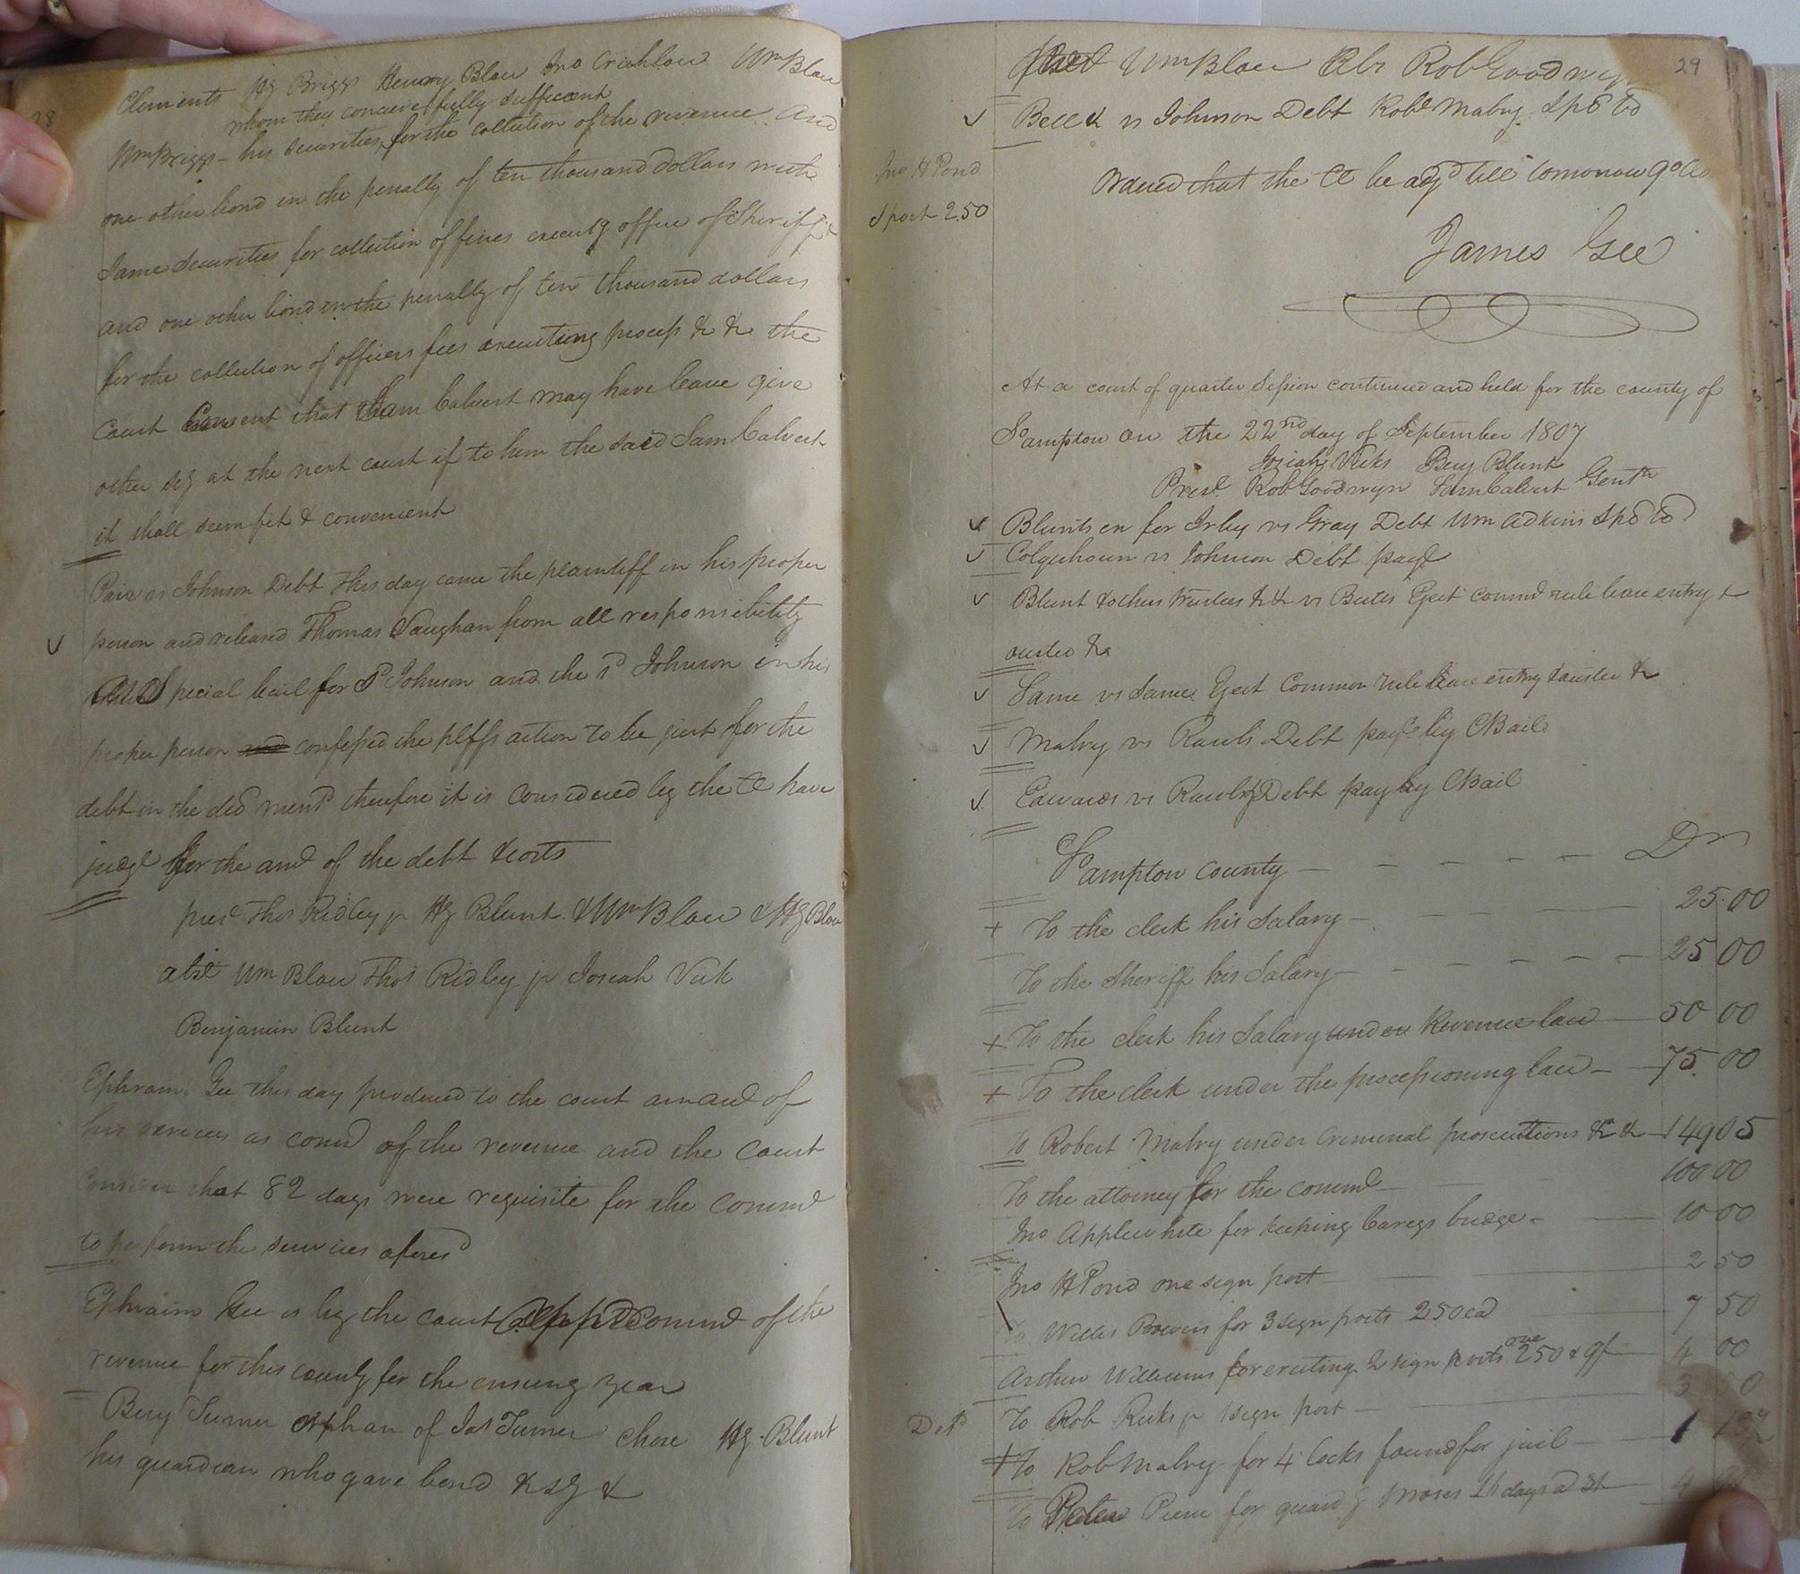 28
Clements Hy Briggs Henry Blow Jno Crichlow Wm Blow
whom they conceive fully sufficent
Wm Briggs his securities for the collection of the revenue and
one other bond in the penalty of ten thousand dollars with
same securities for collection of fines executg office of Sheriff &
and one other bond in the penalty of ten thousand dollars
for the collection of officers fees executing process &c &c the
Court Consent that Sam Calvert may have leave give
other sy at the next court if to him the said Sam Calvert
it shall seem fit & convenient
vs Johnson Debt this day came the plaintiff in his proper
person and released Thomas Vaughan from all responsibility
as Special bail for sd Johnson and the sd Johnson in his
proper person and confessed the pltffs action to be just for the
debt in the decl mentd therefore it is considered by the Ct have
judgt for the amt of the debt & costs
prest Thos Ridley jr Hy Blunt & Wm Blow & Hy Blow
abst Wm Blow Thos Ridley jr Josiah Vick
Benjamin Blunt
Ephraim Gee this day produced to the court an acct of
his services as comr of the revenue and the court
consider that 82 days were requisite for the comr
to perform the services aforesd
Ephraim Gee is by the court appd Comr of the
revenue for this county for the ensuing year
Benj Turner Orphan of Jas Turner chose Hy Blunt
his guardian who gave bond & sy &
29
Prest Wm Blow Abs Rob Goodwyn
Bell & vs Johnson Debt Robt Mabry Spd bd
Jno H Pond
1 post 2.50
Ordered that the Ct be adjd till tomorrow 9 o
James Gee
At a court of quarter Session continued and held for the county of
Sampton on the 22nd day of September 1807
Josiah Vicks Benj Blunt
Prest Rob Goodwyn Sam Calvert Gentn
Blunts ex for Irby vs Gray Debt Wm Adkins Spd bd
Colquhoun vs Johnson Debt payt
Blunt & others trustees &c &c vs Butts Eject comd rule leave entry &
ouster &c
Same vs Same Eject Common rule leave entry & ouster &c
Mabry vs Rawls Debt payt by CBail
Edwards vs Rawls Debt pay by CBail
Sampton County Dr
To the clerk his Salary 25.00
To the Sheriff his Salary 25 00
To the clerk his Salary under Revenue law 50 00
To the clerk under the processioning law 75.00
To Robert Mabry under Criminal prosecutions &c &c 149 05
To the attorney for the comm 100 00
Jno Applewhite for keeping Careys bridge 10 00
Jno H Pond one sign post 2 50
To Willis Bowers for 3 sign posts 250 ea 7 50
Arthur Williams for erecting 2 sign posts one 250 & 9/ 4 00
To Rob Ricks jr 1 sign post
To Rob Mabry for 4 locks found for jail 1
To Peter for guard g Moses days a